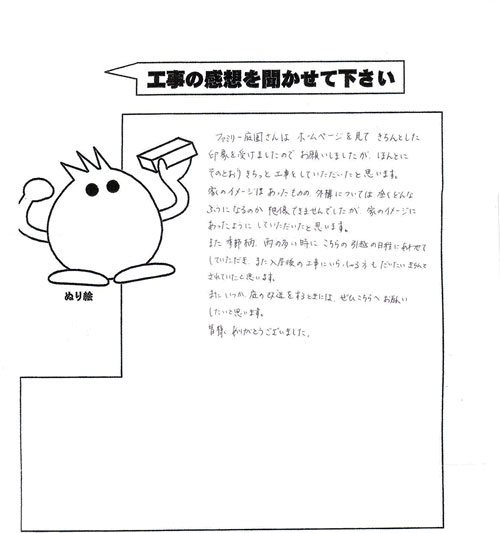 工事の感想を聞かせて下さい
ファミリー庭園さんは ホームページを見て きちんとした
印象を受けましたので お願いしましたが、ほんとに
そのとおり きちっと 工事をしていただいたと思います。
家のイメージは あったものの、外構については 全くどんな
ふうになるのか 想像できませんでしたが、家のイメージに
あったように していただいたと思います。
また 季節柄、雨の多い時に こちらの 引越の日程にあわせて
していただき、また入居後の工事にいらっしゃる方も だいたい きちんと
されていたと思います。
また いつか、庭の改造をするときには、ぜひこちらへ お願い
したいと思います。
皆様、ありがとうございました。
ぬり絵